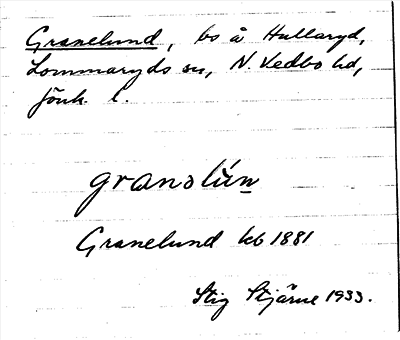 Granelund, bs å Hullaryd,
Lommaryds sn, N. Vedbo hd,
Jönk. l.
granolún
Granelund kb 1881
Stig Stjärne 1933.